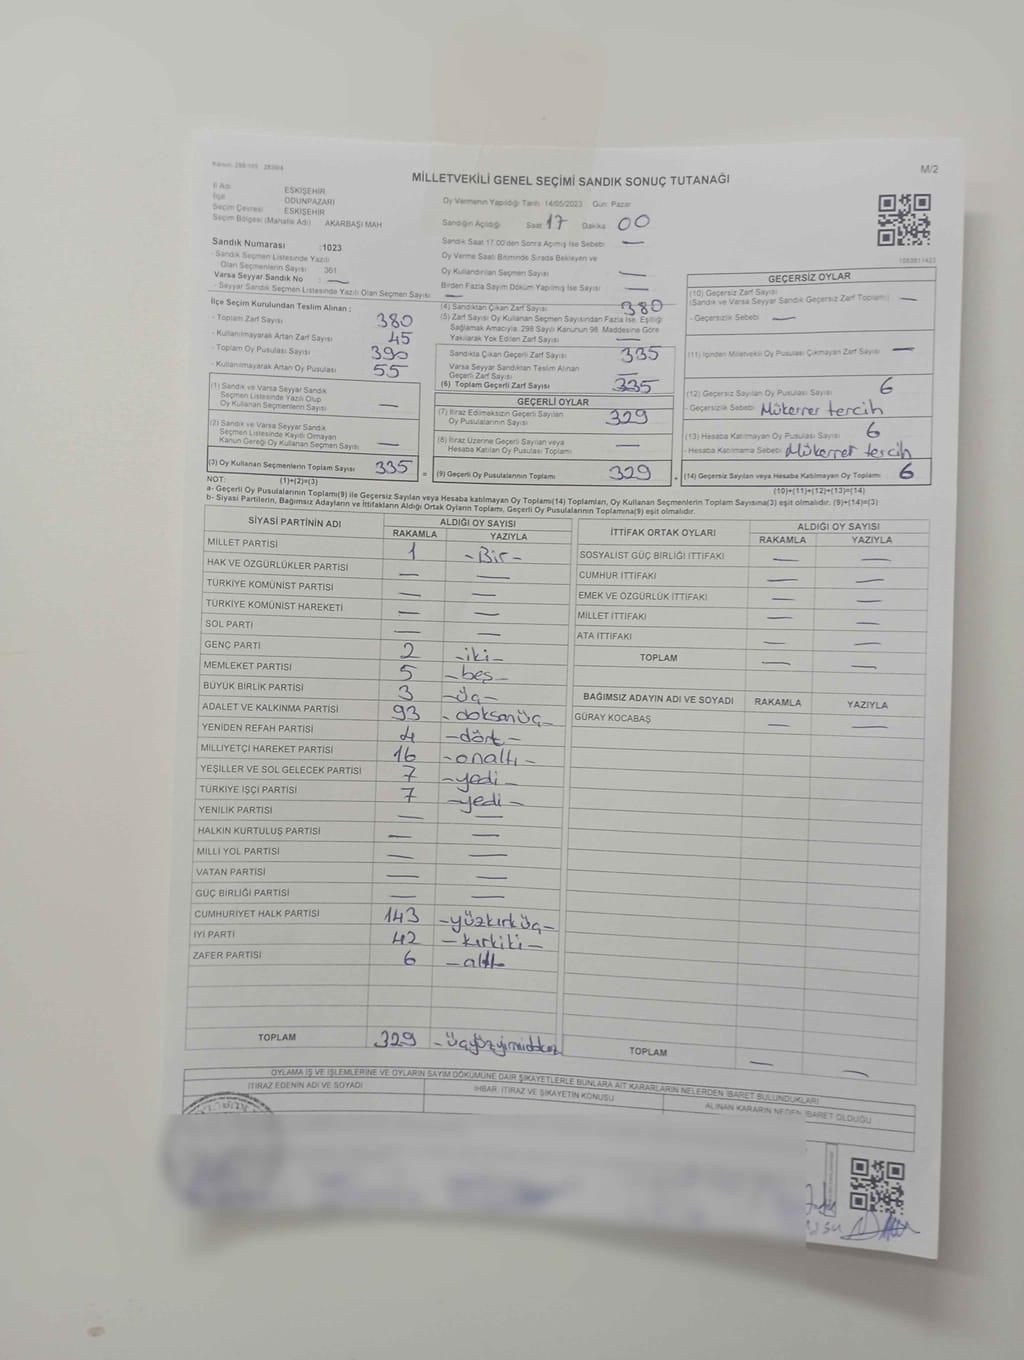 Kanun: 298/105 2839/4
M/2
MİLLETVEKİLİ GENEL SEÇİMİ SANDIK SONUÇ TUTANAĞI
İl Adı ESKİŞEHİR
İlçe ODUNPAZARI
Seçim Çevresi ESKİŞEHİR
Seçim Bölgesi (Mahalle Adı) AKARBAŞI MAH
Sandık Numarası :1023
- Sandık Seçmen Listesinde Yazılı
Olan Seçmenlerin Sayısı 361
Varsa Seyyar Sandık No : —
- Seyyar Sandık Seçmen Listesinde Yazılı Olan Seçmen Sayısı —
Oy Vermenin Yapıldığı Tarih 14/05/2023 Gün: Pazar
Sandığın Açıldığı Saat 17 Dakika 00
Sandık Saat 17.00'den Sonra Açımış İse Sebebi —
Oy Verme Saati Bitiminde Sırada Bekleyen ve
Oy Kullandırılan Seçmen Sayısı —
Birden Fazla Sayım Döküm Yapılmış İse Sayısı —
1083811423
İlçe Seçim Kurulundan Teslim Alınan ;
- Toplam Zarf Sayısı 380
- Kullanılmayarak Artan Zarf Sayısı 45
- Toplam Oy Pusulası Sayısı 390
- Kullanılmayarak Artan Oy Pusulası 55
(1) Sandık ve Varsa Seyyar Sandık
Seçmen Listesinde Yazılı Olup
Oy Kullanan Seçmenlerin Sayısı —
(2) Sandık ve Varsa Seyyar Sandık
Seçmen Listesinde Kayıtlı Olmayan
Kanun Gereği Oy Kullanan Seçmen Sayısı —
(3) Oy Kullanan Seçmenlerin Toplam Sayısı 335 =
(4) Sandıktan Çıkan Zarf Sayısı 380
(5) Zarf Sayısı Oy Kullanan Seçmen Sayısından Fazla İse, Eşitliği
Sağlamak Amacıyla; 298 Sayılı Kanunun 98. Maddesine Göre
Yakılarak Yok Edilen Zarf Sayısı —
Sandıkta Çıkan Geçerli Zarf Sayısı 335
Varsa Seyyar Sandıktan Teslim Alınan
Geçerli Zarf Sayısı —
(6) Toplam Geçerli Zarf Sayısı 335
GEÇERLİ OYLAR
(7) İtiraz Edilmeksizin Geçerli Sayılan
Oy Pusulalarının Sayısı 329
(8) İtiraz Üzerine Geçerli Sayılan veya
Hesaba Katılan Oy Pusulası Toplamı —
(9) Geçerli Oy Pusulalarının Toplamı 329 +
GEÇERSİZ OYLAR
(10) Geçersiz Zarf Sayısı
(Sandık ve Varsa Seyyar Sandık Geçersiz Zarf Toplamı) —
- Geçersizlik Sebebi —
(11) İçinden Milletvekili Oy Pusulası Çıkmayan Zarf Sayısı —
(12) Geçersiz Sayılan Oy Pusulası Sayısı 6
- Geçersizlik Sebebi Mükerrer tercih
(13) Hesaba Katılmayan Oy Pusulası Sayısı 6
- Hesaba Katılmama Sebebi Mükerrer tercih
(14) Geçersiz Sayılan veya Hesaba Katılmayan Oy Toplamı 6
NOT: (1)+(2)=(3) (10)+(11)+(12)+(13)=(14)
a- Geçerli Oy Pusulalarının Toplamı(9) ile Geçersiz Sayılan veya Hesaba katılmayan Oy Toplamı(14) Toplamları, Oy Kullanan Seçmenlerin Toplam Sayısına(3) eşit olmalıdır. (9)+(14)=(3)
b- Siyasi Partilerin, Bağımsız Adayların ve İttifakların Aldığı Ortak Oyların Toplamı, Geçerli Oy Pusulalarının Toplamına(9) eşit olmalıdır.
SİYASİ PARTİNİN ADI ALDIĞI OY SAYISI
RAKAMLA YAZIYLA
MİLLET PARTİSİ 1 -Bir-
HAK VE ÖZGÜRLÜKLER PARTİSİ — —
TÜRKİYE KOMÜNİST PARTİSİ — —
TÜRKİYE KOMÜNİST HAREKETİ — —
SOL PARTİ — —
GENÇ PARTİ 2 -iki-
MEMLEKET PARTİSİ 5 -beş-
BÜYÜK BİRLİK PARTİSİ 3 -üç-
ADALET VE KALKINMA PARTİSİ 93 -doksanüç-
YENİDEN REFAH PARTİSİ 4 -dört-
MİLLİYETÇİ HAREKET PARTİSİ 16 -onaltı-
YEŞİLLER VE SOL GELECEK PARTİSİ 7 -yedi-
TÜRKİYE İŞÇİ PARTİSİ 7 -yedi-
YENİLİK PARTİSİ — —
HALKIN KURTULUŞ PARTİSİ — —
MİLLİ YOL PARTİSİ — —
VATAN PARTİSİ — —
GÜÇ BİRLİĞİ PARTİSİ — —
CUMHURİYET HALK PARTİSİ 143 -yüzkırküç-
İYİ PARTİ 42 -kırkiki-
ZAFER PARTİSİ 6 -altı-
TOPLAM 329 -üçyüzyirmidokuz
İTTİFAK ORTAK OYLARI ALDIĞI OY SAYISI
RAKAMLA YAZIYLA
SOSYALİST GÜÇ BİRLİĞİ İTTİFAKI — —
CUMHUR İTTİFAKI — —
EMEK VE ÖZGÜRLÜK İTTİFAKI — —
MİLLET İTTİFAKI — —
ATA İTTİFAKI — —
TOPLAM — —
BAĞIMSIZ ADAYIN ADI VE SOYADI RAKAMLA YAZIYLA
GÜRAY KOCABAŞ — —
TOPLAM — —
OYLAMA İŞ VE İŞLEMLERİNE VE OYLARIN SAYIM DÖKÜMÜNE DAİR ŞİKAYETLERLE BUNLARA AİT KARARLARIN NELERDEN İBARET BULUNDUKLARI
İTİRAZ EDENİN ADI VE SOYADI İHBAR, İTİRAZ VE ŞİKAYETİN KONUSU ALINAN KARARIN NEDEN İBARET OLDUĞU